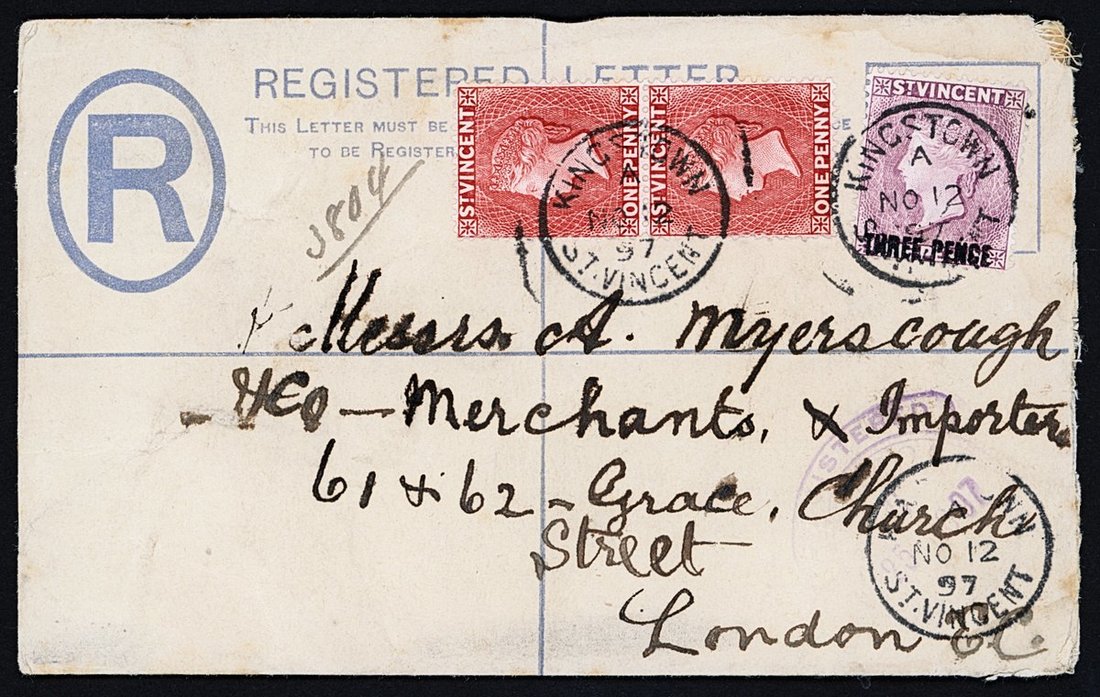 R
REGISTERED LETTER
THIS LETTER MUST BE
CE
TO BE REGISTER
ST VINCENT
ONE PENNY
ST VINCENT
ONE PENNY
ST VINCENT
THREE PENCE
KINGSTOWN
NO 12
97
ST. VINCENT
KINGSTOWN
A
NO 12
3804
Messrs. A. Myerscough
& Co — Merchants, & Importer
61 & 62 — Grace, Church
Street
London EC.
A
NO 12
97
ST. VINCENT